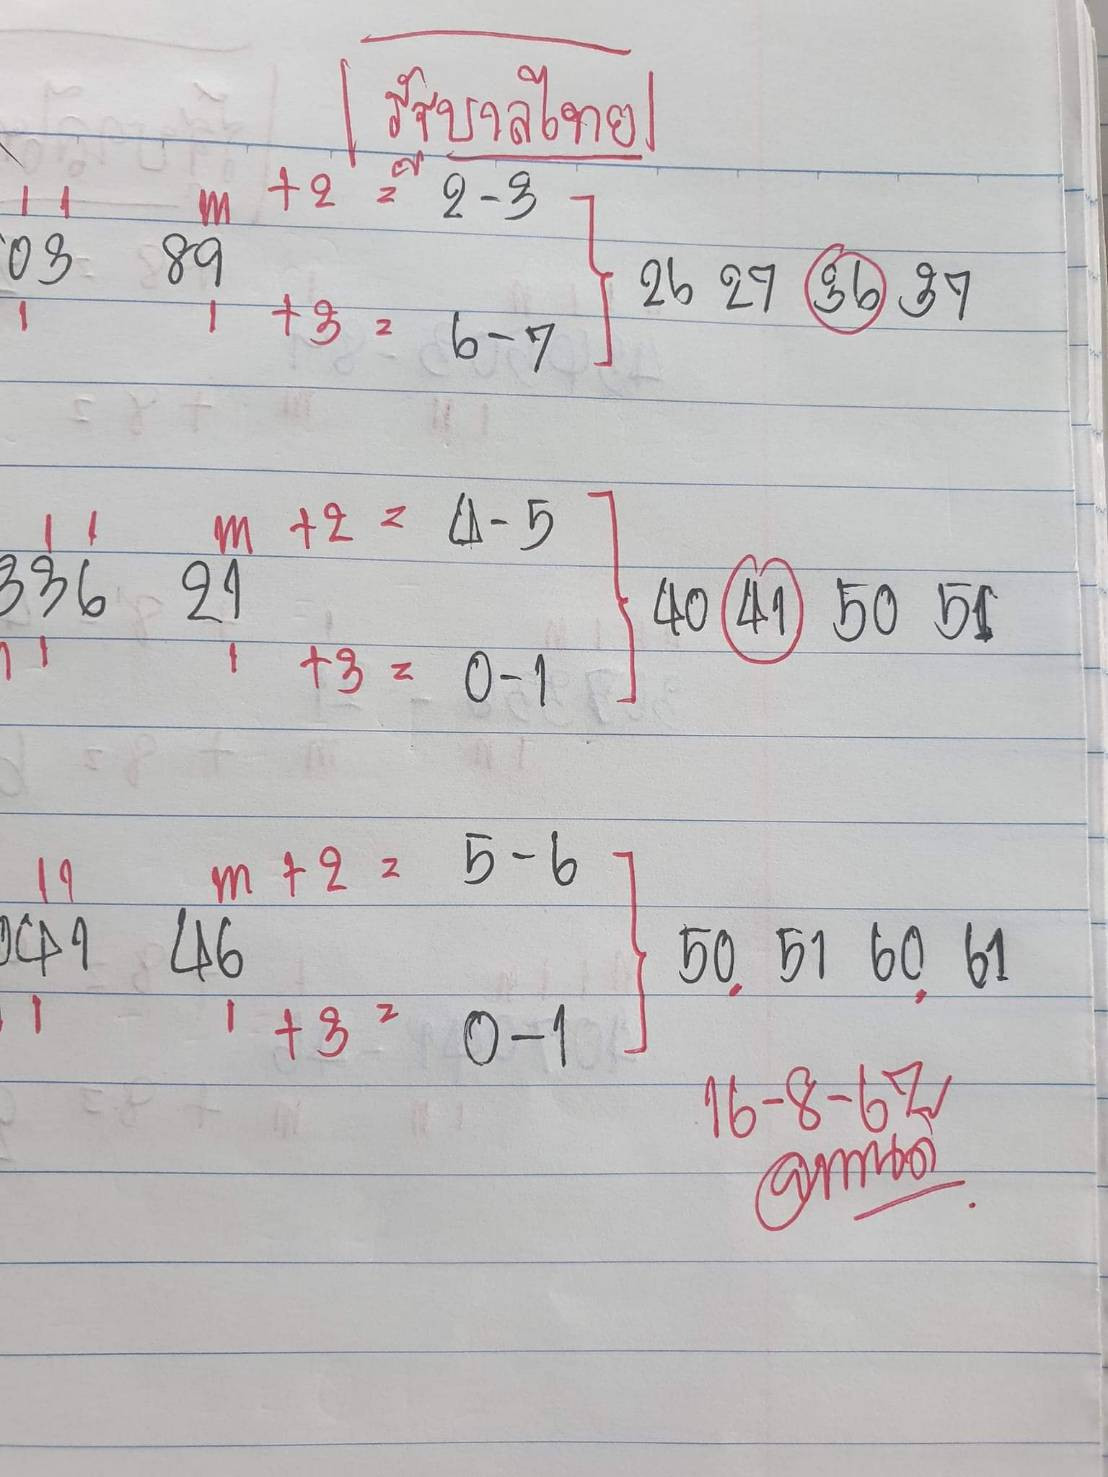 รัฐบาลไทย
11 m +2 = 2-3
03 89 26 27 36 37
1 1 +3 = 6-7
11 m +2 = 4-5
336 21 40 41 50 51
1 1 +3 = 0-1
11 m +2 = 5-6
041 46 50 51 60 61
1 1 +3 = 0-1
16-8-67